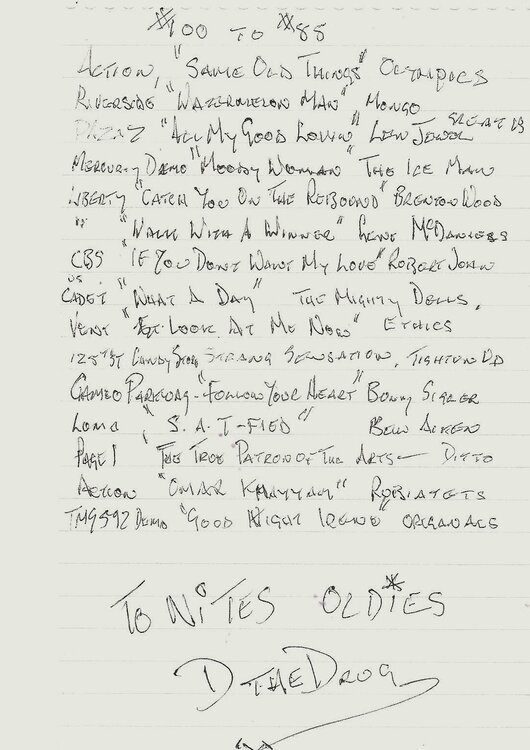 *100 TO *85
ACTION, "SAME OLD THINGS" OLYMPICS
RIVERSIDE "WATERMELON MAN" MONGO
"ALL MY GOOD LOVIN" LEN JEWELL GREAT B
MERCURY DEMO "MOODY WOMAN" THE ICE MAN
LIBERTY "CATCH YOU ON THE REBOUND" BRENTON WOOD
" "WALK WITH A WINNER" GENE MCDANIELS
CBS "IF YOU DONT WANT MY LOVE" ROBERT JOHN
US
CADET "WHAT A DAY" THE MIGHTY DELLS.
VENT LOOK AT ME NOW" ETHICS
125TH ST CANDY STORE STRANG SENSATION, TIGHTEN UP
CAMEO PARKWAY - "FOLLOW YOUR HEART" BUNNY SIGLER
LOMA, "S.A.T-FIED"
PAGE 1 THE TRUE PATRON OF THE ARTS - DITTO
ACTION "OMAR KHAYYAM"
TM9592 DEMO "GOOD NIGHT IRENE" ORIGANALS
TO NITES OLDIES
D THE DROG